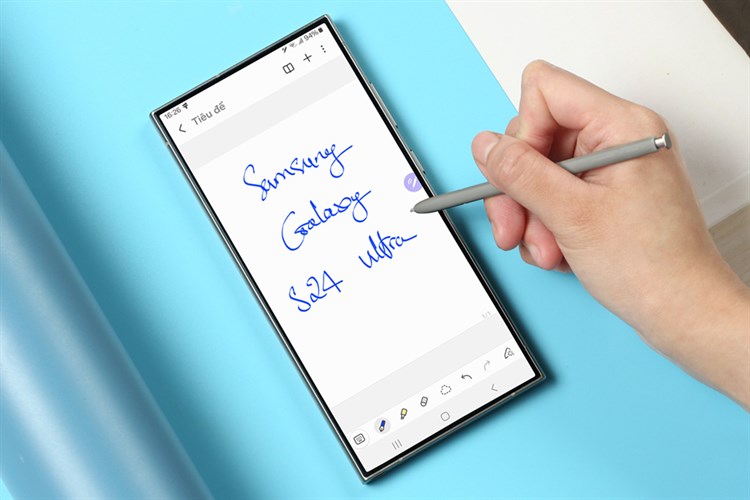 16:26 94%
Tiêu đề
Samsung
Galaxy
S24 Ultra
1/1